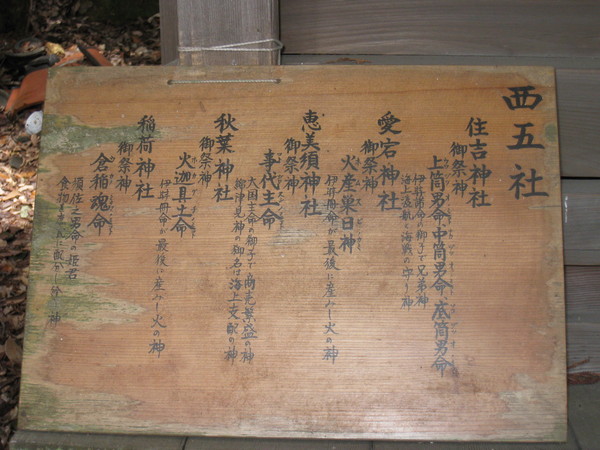 西五社
住吉神社
御祭神
上筒男命、中筒男命、底筒男命
伊弉諾命の御子で兄弟神
海上運航と海戦の守り神
愛宕神社
御祭神
火産巣日神
伊弉冊命が最後に産みし火の神
恵美須神社
御祭神
事代主命
大国主命の御子で商売繁盛の神
御津見神の御名は海上支配の神
秋葉神社
御祭神
火迦具土命
伊弉冊命が最後に産みし火の神
稲荷神社
御祭神
倉稲魂命
須佐之男命の姫君
食物を
神